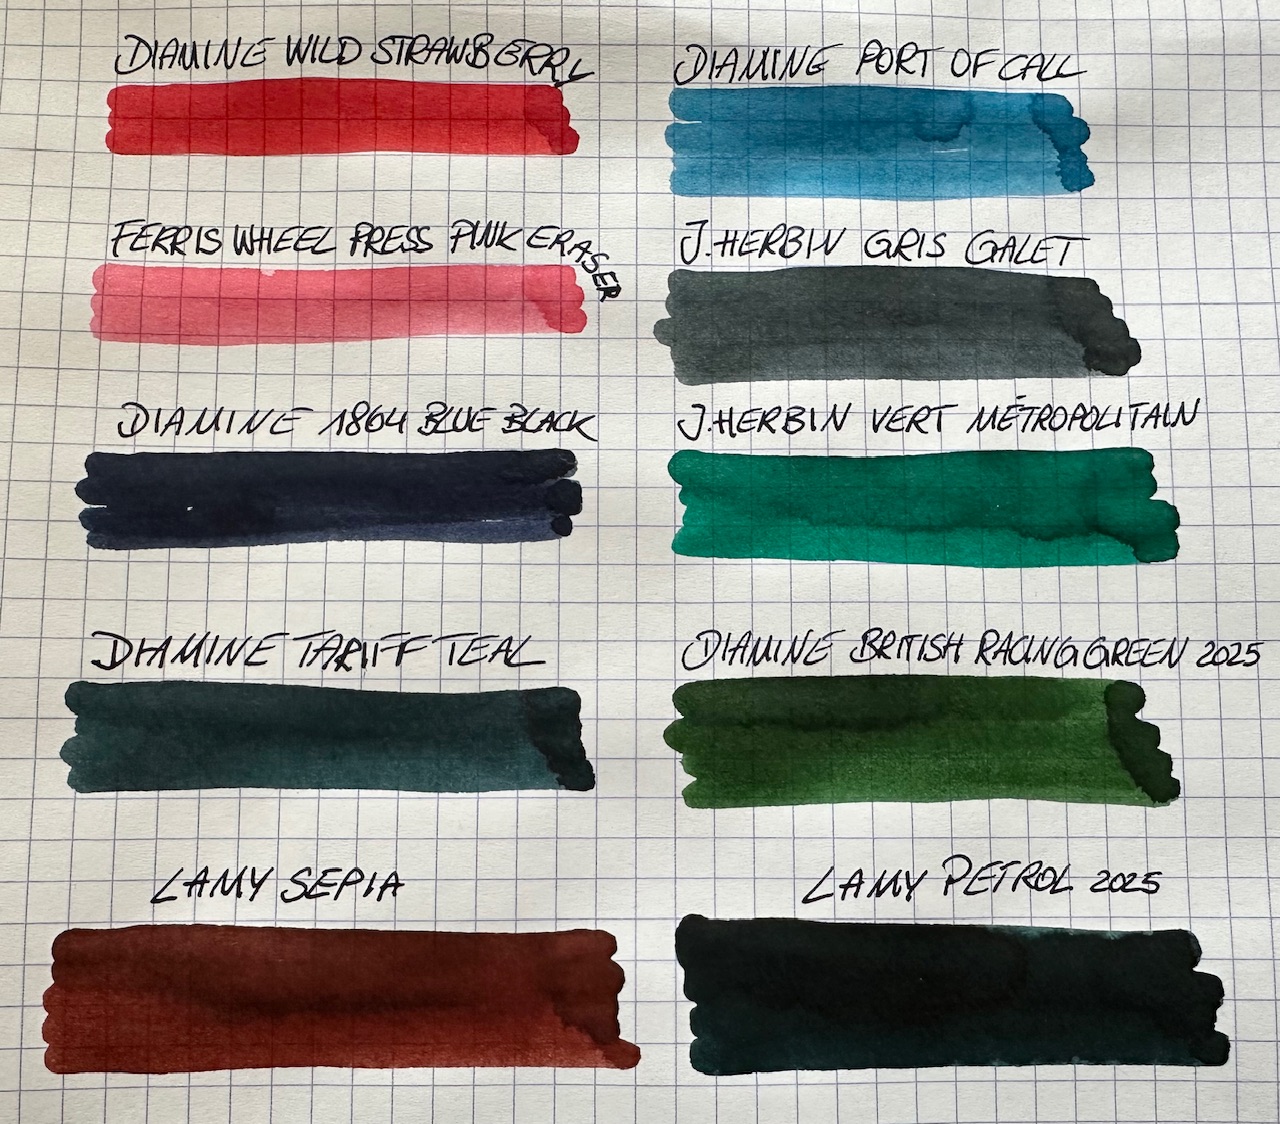 DIAMINE WILD STRAWBERRY
DIAMINE PORT OF CALL
FERRIS WHEEL PRESS PINK ERASER
J.HERBIN GRIS GALET
DIAMINE 1864 BLUE BLACK
J.HERBIN VERT MÉTROPOLITAIN
DIAMINE TARIFF TEAL
DIAMINE BRITISH RACING GREEN 2025
LAMY SEPIA
LAMY PETROL 2025